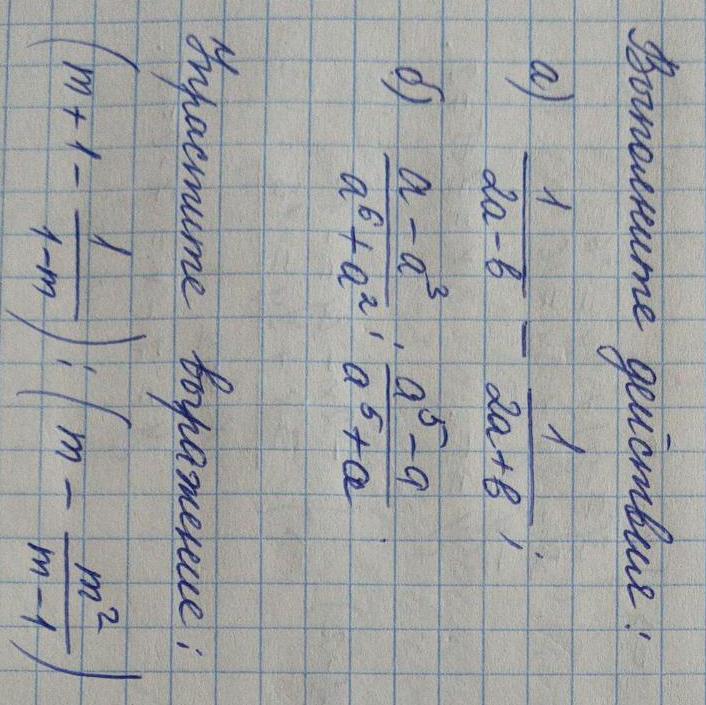 Выполните действия:
а) 1/(2a-b) - 1/(2a+b);
б) (a-a³)/(a⁶+a²) : (a⁵-a)/(a⁵+a).
Упростите выражение:
(m+1 - 1/(1-m)) : (m - m²/(m-1))